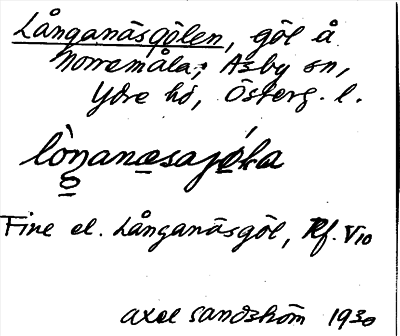 Långanäsgölen, göl å
Norremåla; Asby sn,
Ydre hd, Österg. l.
Fine el. Långanäsgöl, Rf. V10
Axel Sandström 1930